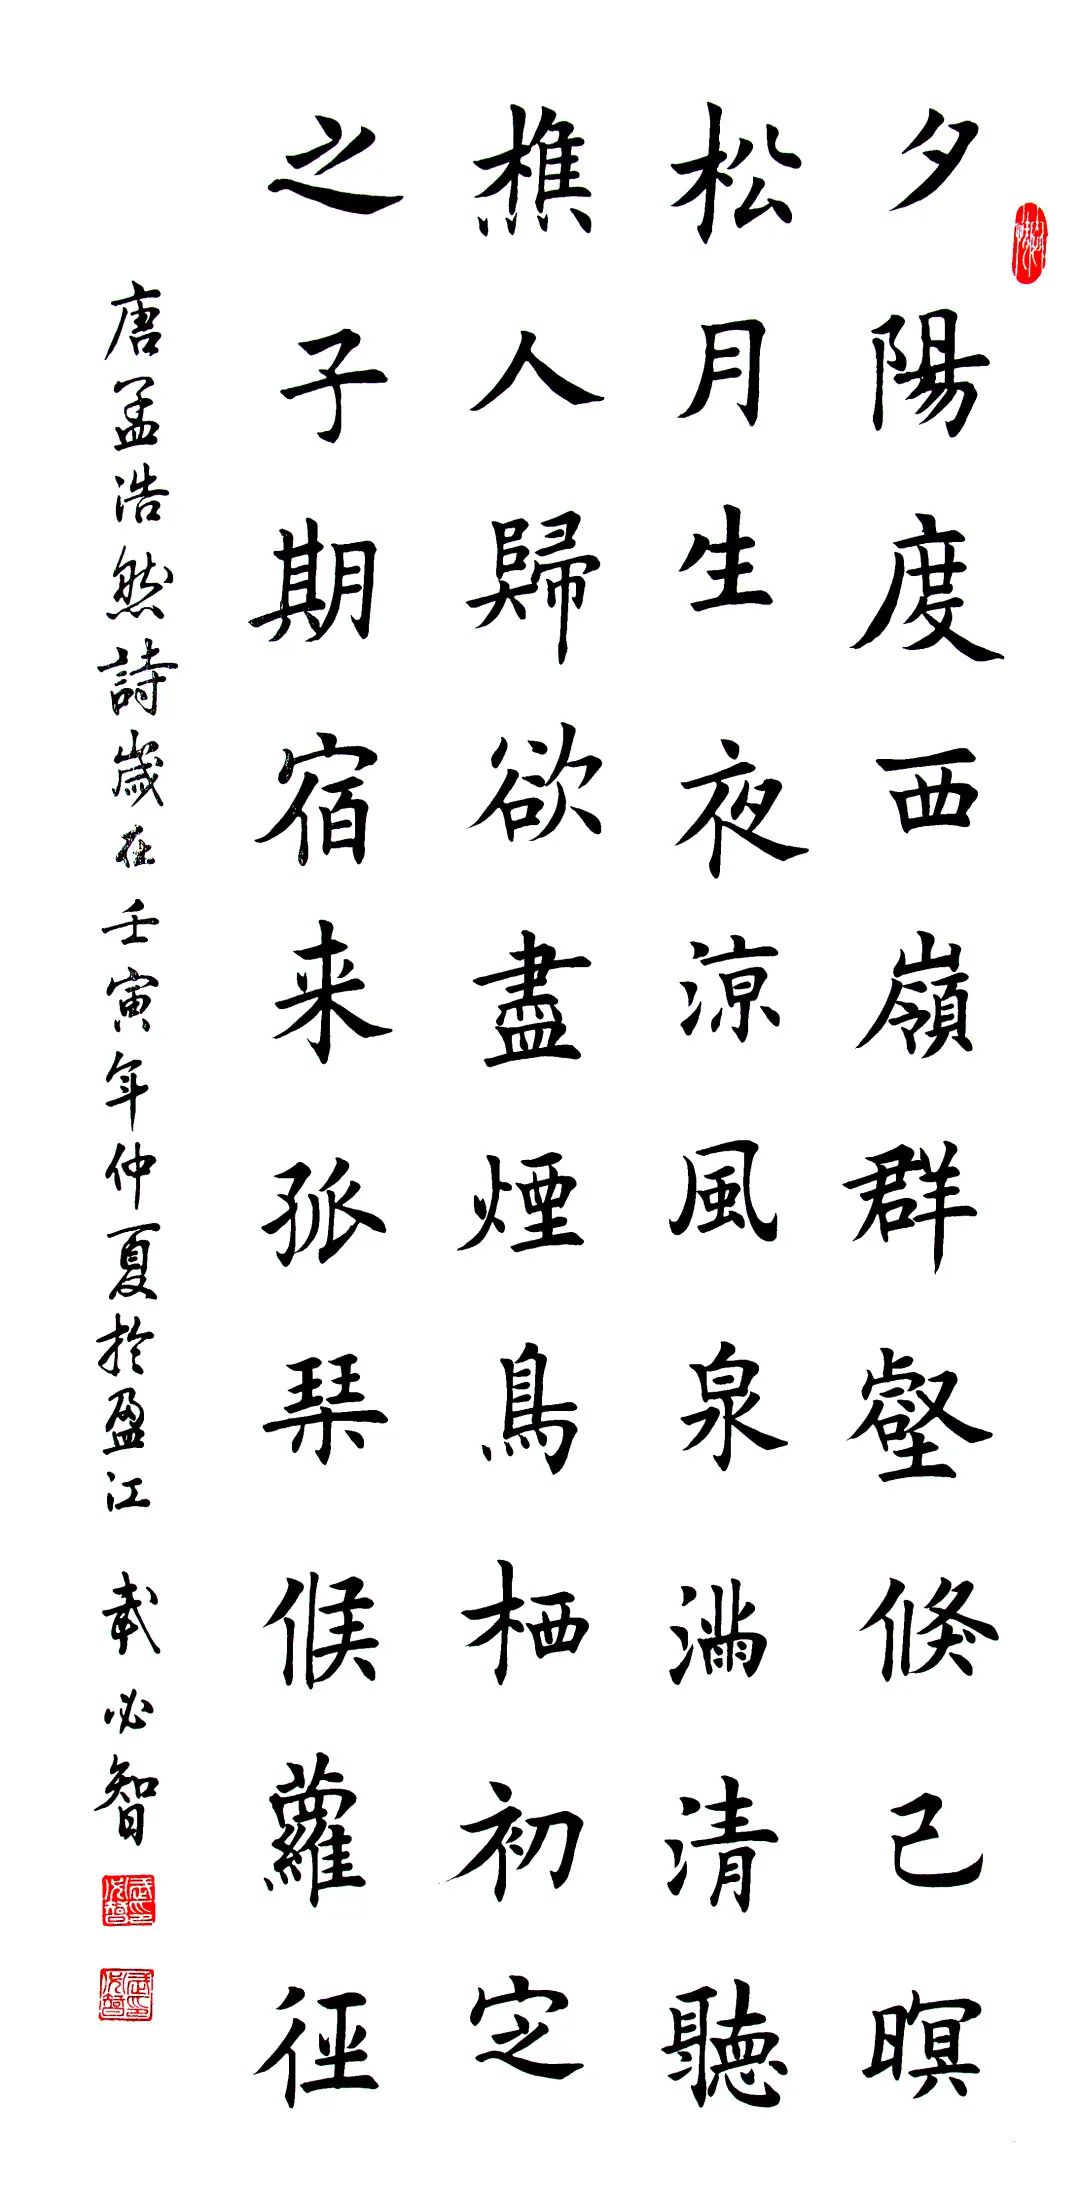 夕陽度西嶺群壑倏已暝
松月生夜涼風泉滿清聽
樵人歸欲盡煙鳥栖初定
之子期宿来孤琴候蘿徑
唐孟浩然詩歲在壬寅年仲夏於盈江 武必智